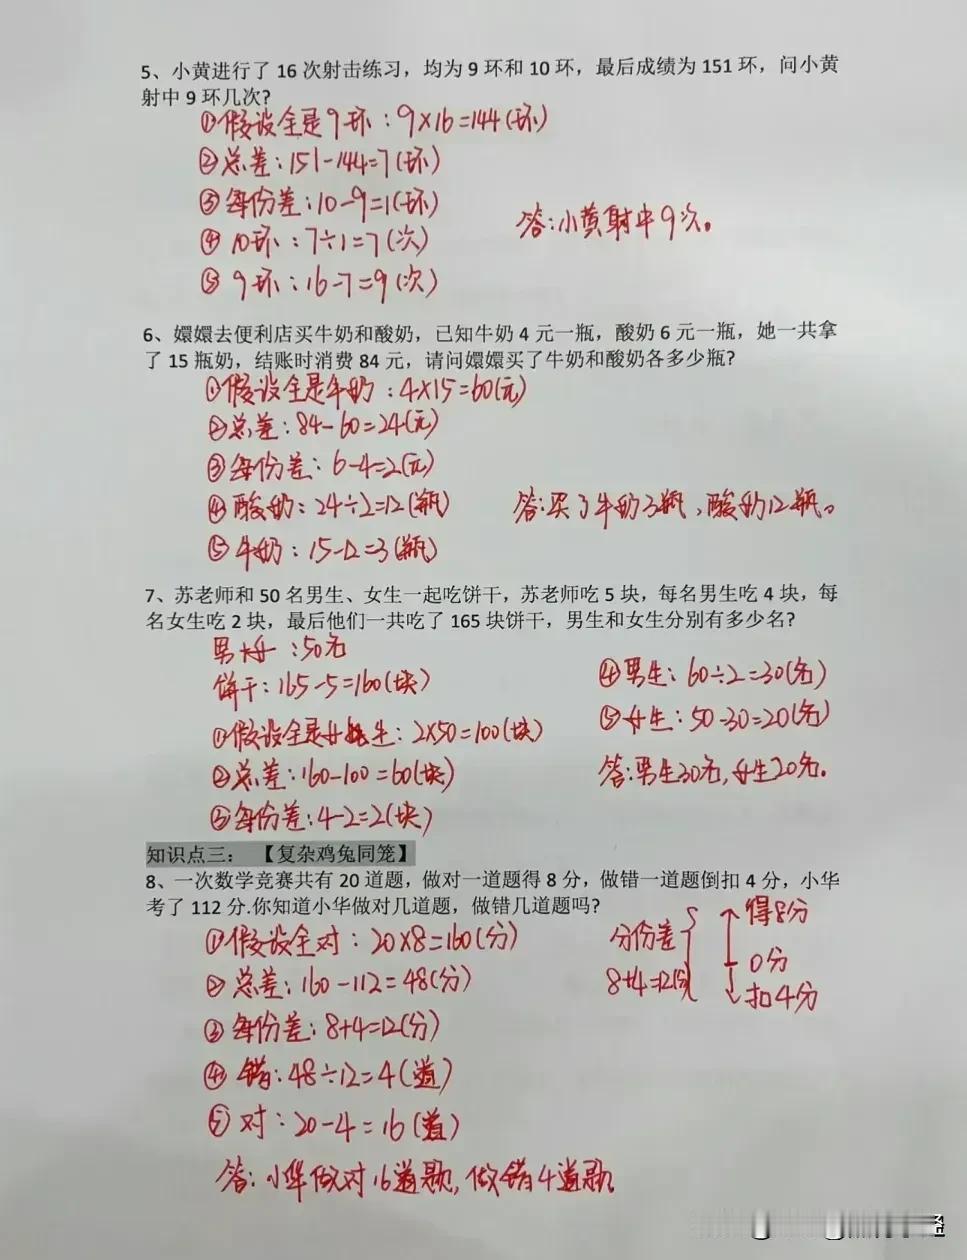 5、小黄进行了 16 次射击练习，均为 9 环和 10 环，最后成绩为 151 环，问小黄
射中 9 环几次?
①假设全是9环：9×16=144(环)
②总差：151-144=7(环)
③每份差：10-9=1(环)
④10环：7÷1=7(次)
⑤9环：16-7=9(次)
答：小黄射中9次。
6、嬛嬛去便利店买牛奶和酸奶，已知牛奶 4 元一瓶，酸奶 6 元一瓶，她一共拿
了 15 瓶奶，结账时消费 84 元，请问嬛嬛买了牛奶和酸奶各多少瓶?
①假设全是牛奶：4×15=60(元)
②总差：84-60=24(元)
③每份差：6-4=2(元)
④酸奶：24÷2=12(瓶)
⑤牛奶：15-12=3(瓶)
答：买了牛奶3瓶，酸奶12瓶。
7、苏老师和 50 名男生、女生一起吃饼干，苏老师吃 5 块，每名男生吃 4 块，每
名女生吃 2 块，最后他们一共吃了 165 块饼干，男生和女生分别有多少名?
男+女：50名
饼干：165-5=160(块)
①假设全是女生：2×50=100(块)
②总差：160-100=60(块)
③每份差：4-2=2(块)
④男生：60÷2=30(名)
⑤女生：50-30=20(名)
答：男生30名，女生20名。
知识点三：【复杂鸡兔同笼】
8、一次数学竞赛共有 20 道题，做对一道题得 8 分，做错一道题倒扣 4 分，小华
考了 112 分.你知道小华做对几道题，做错几道题吗?
①假设全对：20×8=160(分)
②总差：160-112=48(分)
③每份差：8+4=12(分)
④错：48÷12=4(道)
⑤对：20-4=16(道)
答：小华做对16道题，做错4道题。
分份差
8+4=12(分)
得8分
0分
扣4分